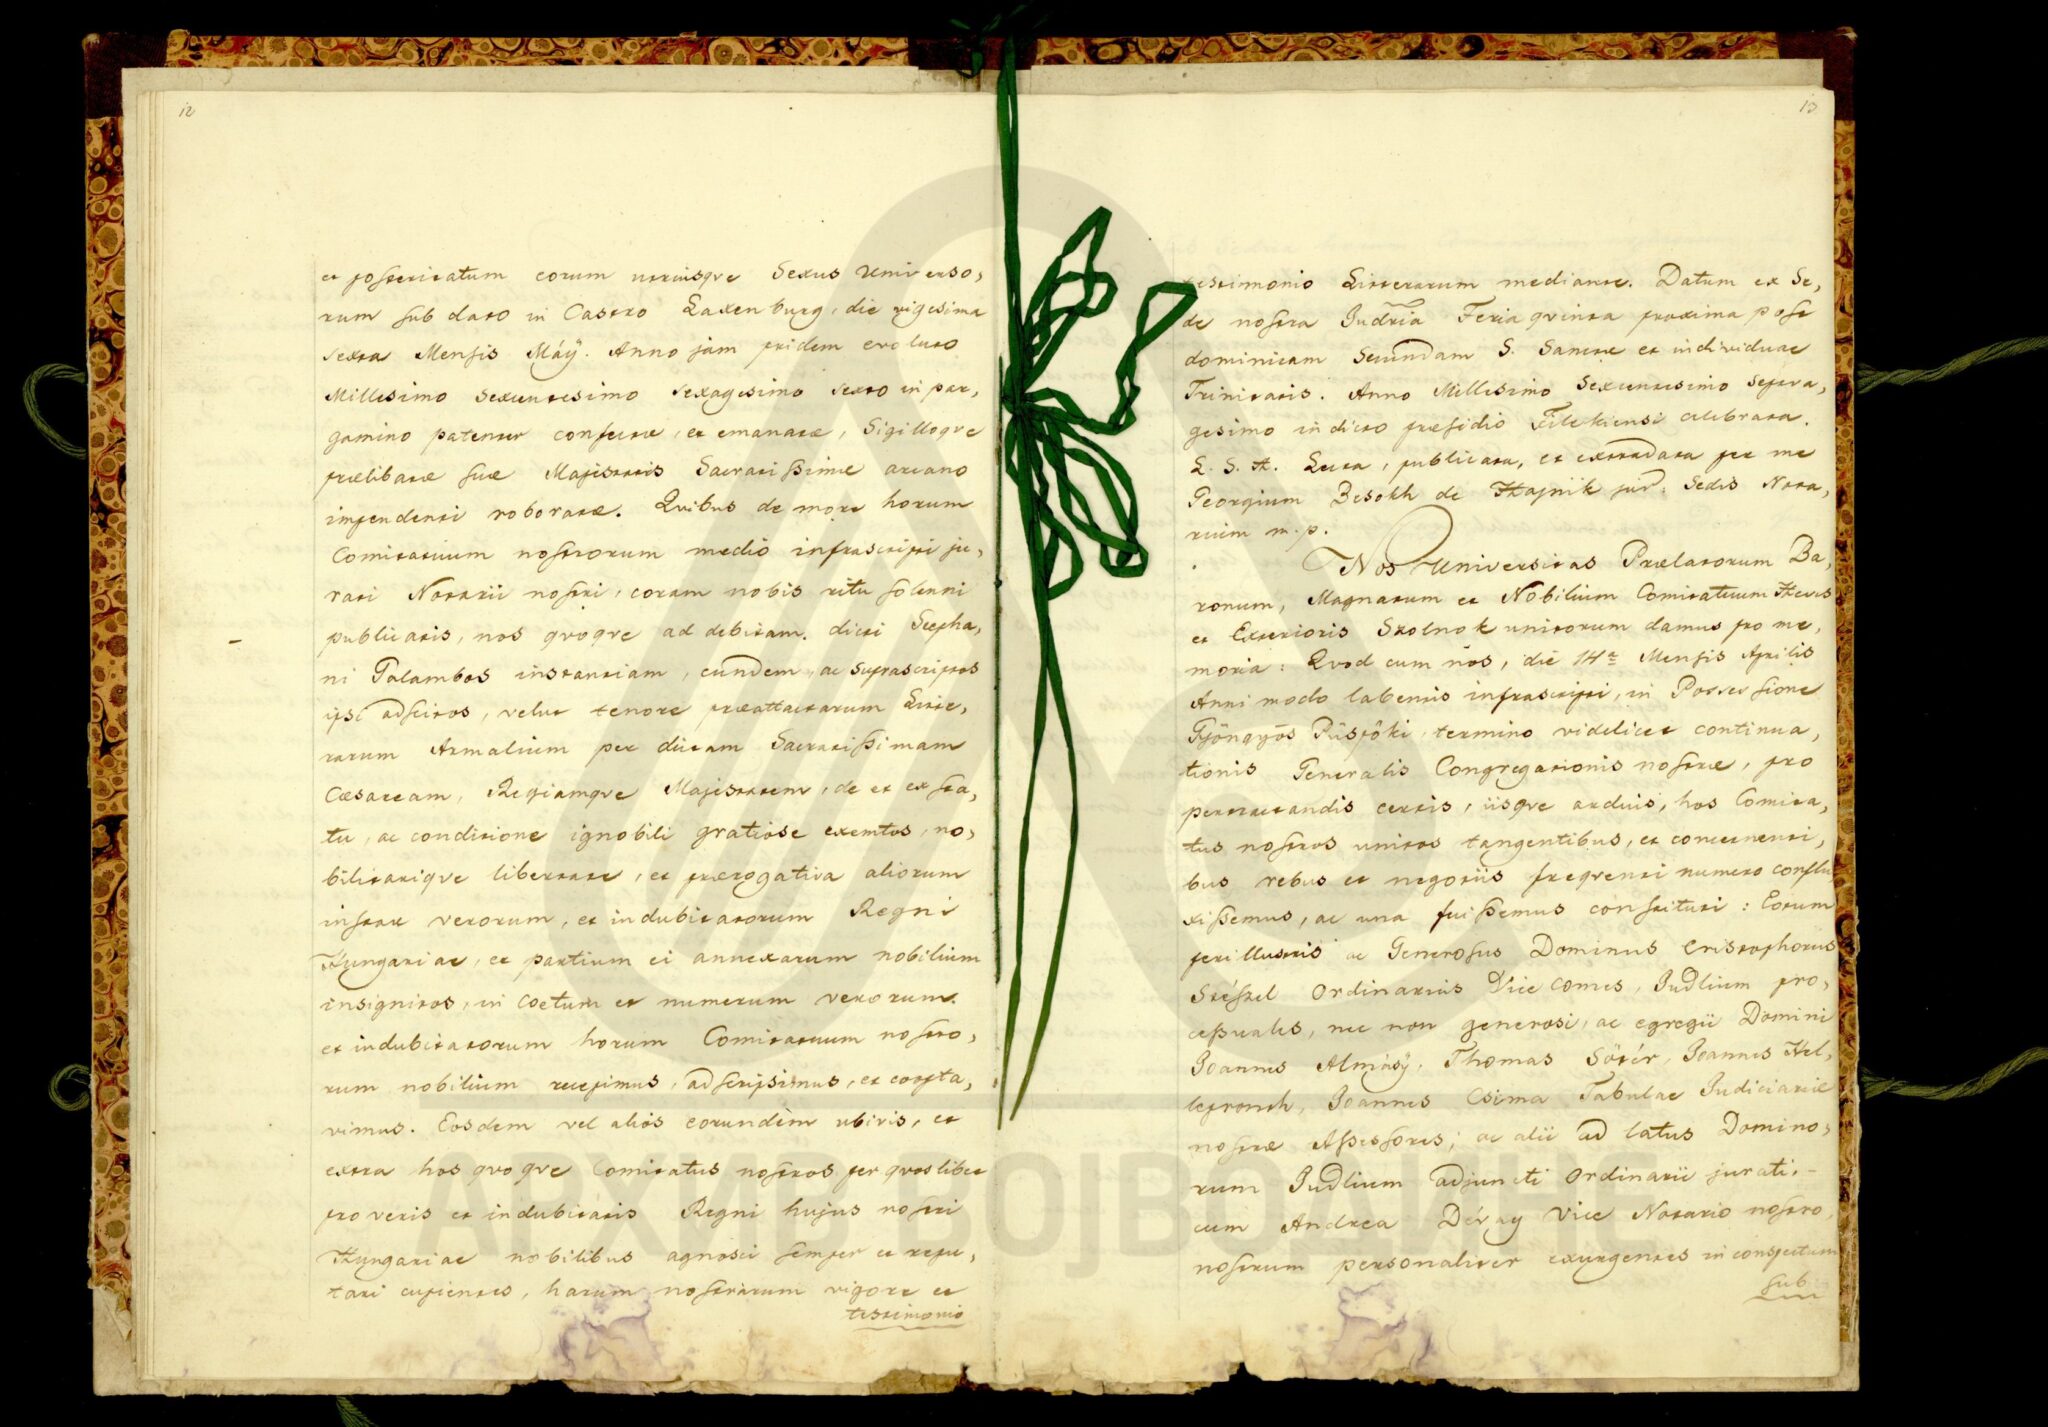 12
et posteritatum eorum utriusqve Sexus Universo,
rum sub dato in Castro Laxenburg, die vigesima
sexta Mensis Máÿ. Anno jam pridem evoluto
Millesimo Sexcentesimo sexagesimo sexto in par,
gamino patenter confectae, et emanatae, Sigilloqve
praelibatae suae Majestatis Sacratissimae arcano
impendenti roboratae. Qvibus de more horum
Comitatuum nostrorum medio infrascripti ju,
rati Notarii nostri, coram nobis ritu solenni
publicatis, nos qvoqve ad debitam dicti Stepha,
ni Galambos instantiam, eundem, ac suprascriptos
ipsi adscitos, velut tenore praeattactarum Litte,
rarum Armalium per dictam Sacratissimam
Caesaream, Regiamqve Majestatem, de et ex sta,
tu, ac conditione ignobili gratiose exemtos, no,
bilitariqve libertate, et praerogativa aliorum
instar verorum, et indubitatorum Regni
Hungariae, et partium ei annexarum nobilium
insignitos, in coetum et numerum verorum
et indubitatorum horum Comitatuum nostro,
rum nobilium recepimus, adscripsimus, et coopta,
vimus. Eosdem vel alios eorundem ubivis, et
extra hos qvoqve Comitatus nostros per qvoslibet
pro veris et indubitatis Regni hujus nostri
Hungariae nobilibus agnosci semper et repu,
tari cupientes, harum nostrarum vigore et
testimonio
13
testimonio Litterarum mediante. Datum ex Se,
de nostra Judria Feria qvinta proxima post
dominicam Secundam S. Sanctae et individuae
Trinitatis. Anno Millesimo Sexcentesimo Septua,
gesimo in dicto praesidio Filekiensi celebrata.
L. S. H. Lecta, publicata, et extradata per me
Georgium Besokh de Hajnik jur. Sedis Nota,
rium m. p.
Nos Universitas Praelatorum Ba,
ronum, Magnatum et Nobilium Comitatuum Heves
et Exterioris Szolnok unitorum damus pro me,
moria: Qvod cum nos, die 14a Mensis Aprilis
Anni modo labentis infrascripti, in Possessione
Gÿöngyös Püspöki termino videlicet continua,
tionis Generalis Congregationis nostrae, pro
pertractandis certis, iisqve arduis, hos Comita,
tus nostros unitos tangentibus, et concernenti,
bus rebus et negotiis freqventi numero conflu,
xissemus, ac una fuissemus constituti: Eorum
perillustris ac Generosus Dominus Cristophorus
Stészel Ordinarius Vice Comes, Judlium pro,
cessualis, nec non generosi, ac egregii Domini
Joannes Almásÿ, Thomas Sötér, Joannes Hel,
lepronth, Joannes Csima Tabulae Judiciariae
nostrae Assessores; ac alii ad latus Domino,
rum Judlium adjuncti Ordinarii jurati, -
cum Andrea Dévay Vice Notario nostro,
nostrum personaliter exurgentes in conspectum
sub